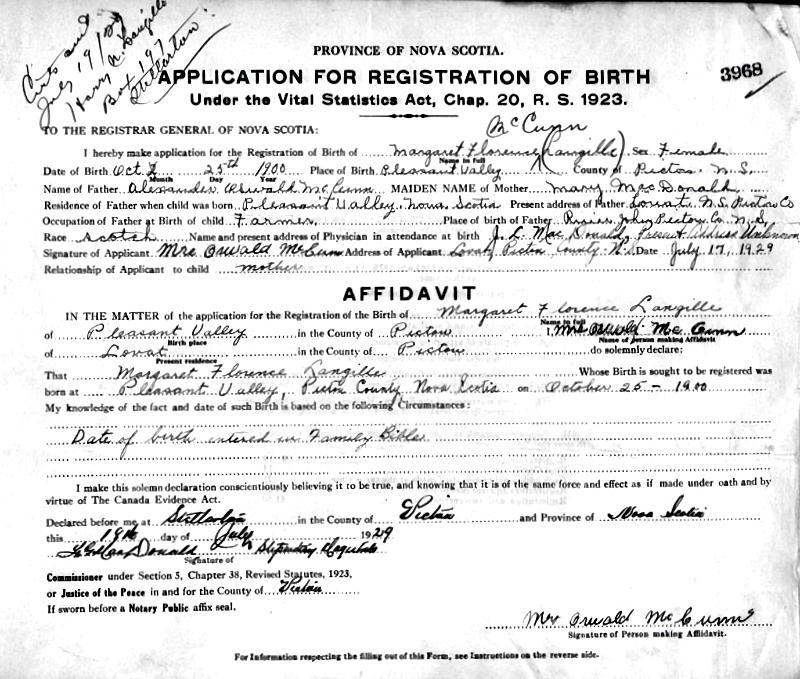 July 19/29
Harry A. Langille
Box 197
Stellarton.
PROVINCE OF NOVA SCOTIA.
3968
APPLICATION FOR REGISTRATION OF BIRTH
Under the Vital Statistics Act, Chap. 20, R. S. 1923.
TO THE REGISTRAR GENERAL OF NOVA SCOTIA:
McCunn
I hereby make application for the Registration of Birth of Margaret Florence (Langille) Sex Female
Name in Full
Date of Birth Oct 25th 1900 Place of Birth Pleasant Valley County of Pictou N.S.
Month Day Year
Name of Father Alexander Oswald McCunn MAIDEN NAME of Mother Mary MacDonald
Residence of Father when child was born Pleasant Valley, Nova Scotia Present address of Father Lovat N.S. Pictou Co
Occupation of Father at Birth of child Farmer Place of birth of Father River John Pictou Co. N.S.
Race Scotch Name and present address of Physician in attendance at birth J. L. MacDonald, Present Address Unknown
Signature of Applicant Mrs Oswald McCunn Address of Applicant Lovat, Pictou County N.S. Date July 17, 1929
Relationship of Applicant to child mother
AFFIDAVIT
IN THE MATTER of the application for the Registration of the Birth of Margaret Florence Langille
Name in Full
of Pleasant Valley in the County of Pictou I, Mrs Oswald McCunn
Birth place Name of person making Affidavit
of Lovat in the County of Pictou do solemnly declare:
Present residence
That Margaret Florence Langille Whose Birth is sought to be registered was
born at Pleasant Valley, Pictou County, Nova Scotia on October 25 - 1900
My knowledge of the fact and date of such Birth is based on the following Circumstances:
Date of birth entered in Family Bible
I make this solemn declaration conscientiously believing it to be true, and knowing that it is of the same force and effect as if made under oath and by
virtue of The Canada Evidence Act.
Declared before me at Stellarton in the County of Pictou and Province of Nova Scotia
this 19th day of July 1929
MacDonald Stipendiary Magistrate
Signature of
Commissioner under Section 5, Chapter 38, Revised Statutes, 1923,
or Justice of the Peace in and for the County of Pictou
If sworn before a Notary Public affix seal.
Mrs Oswald McCunn
Signature of Person making Affidavit.
For Information respecting the filling out of this Form, see Instructions on the reverse side.